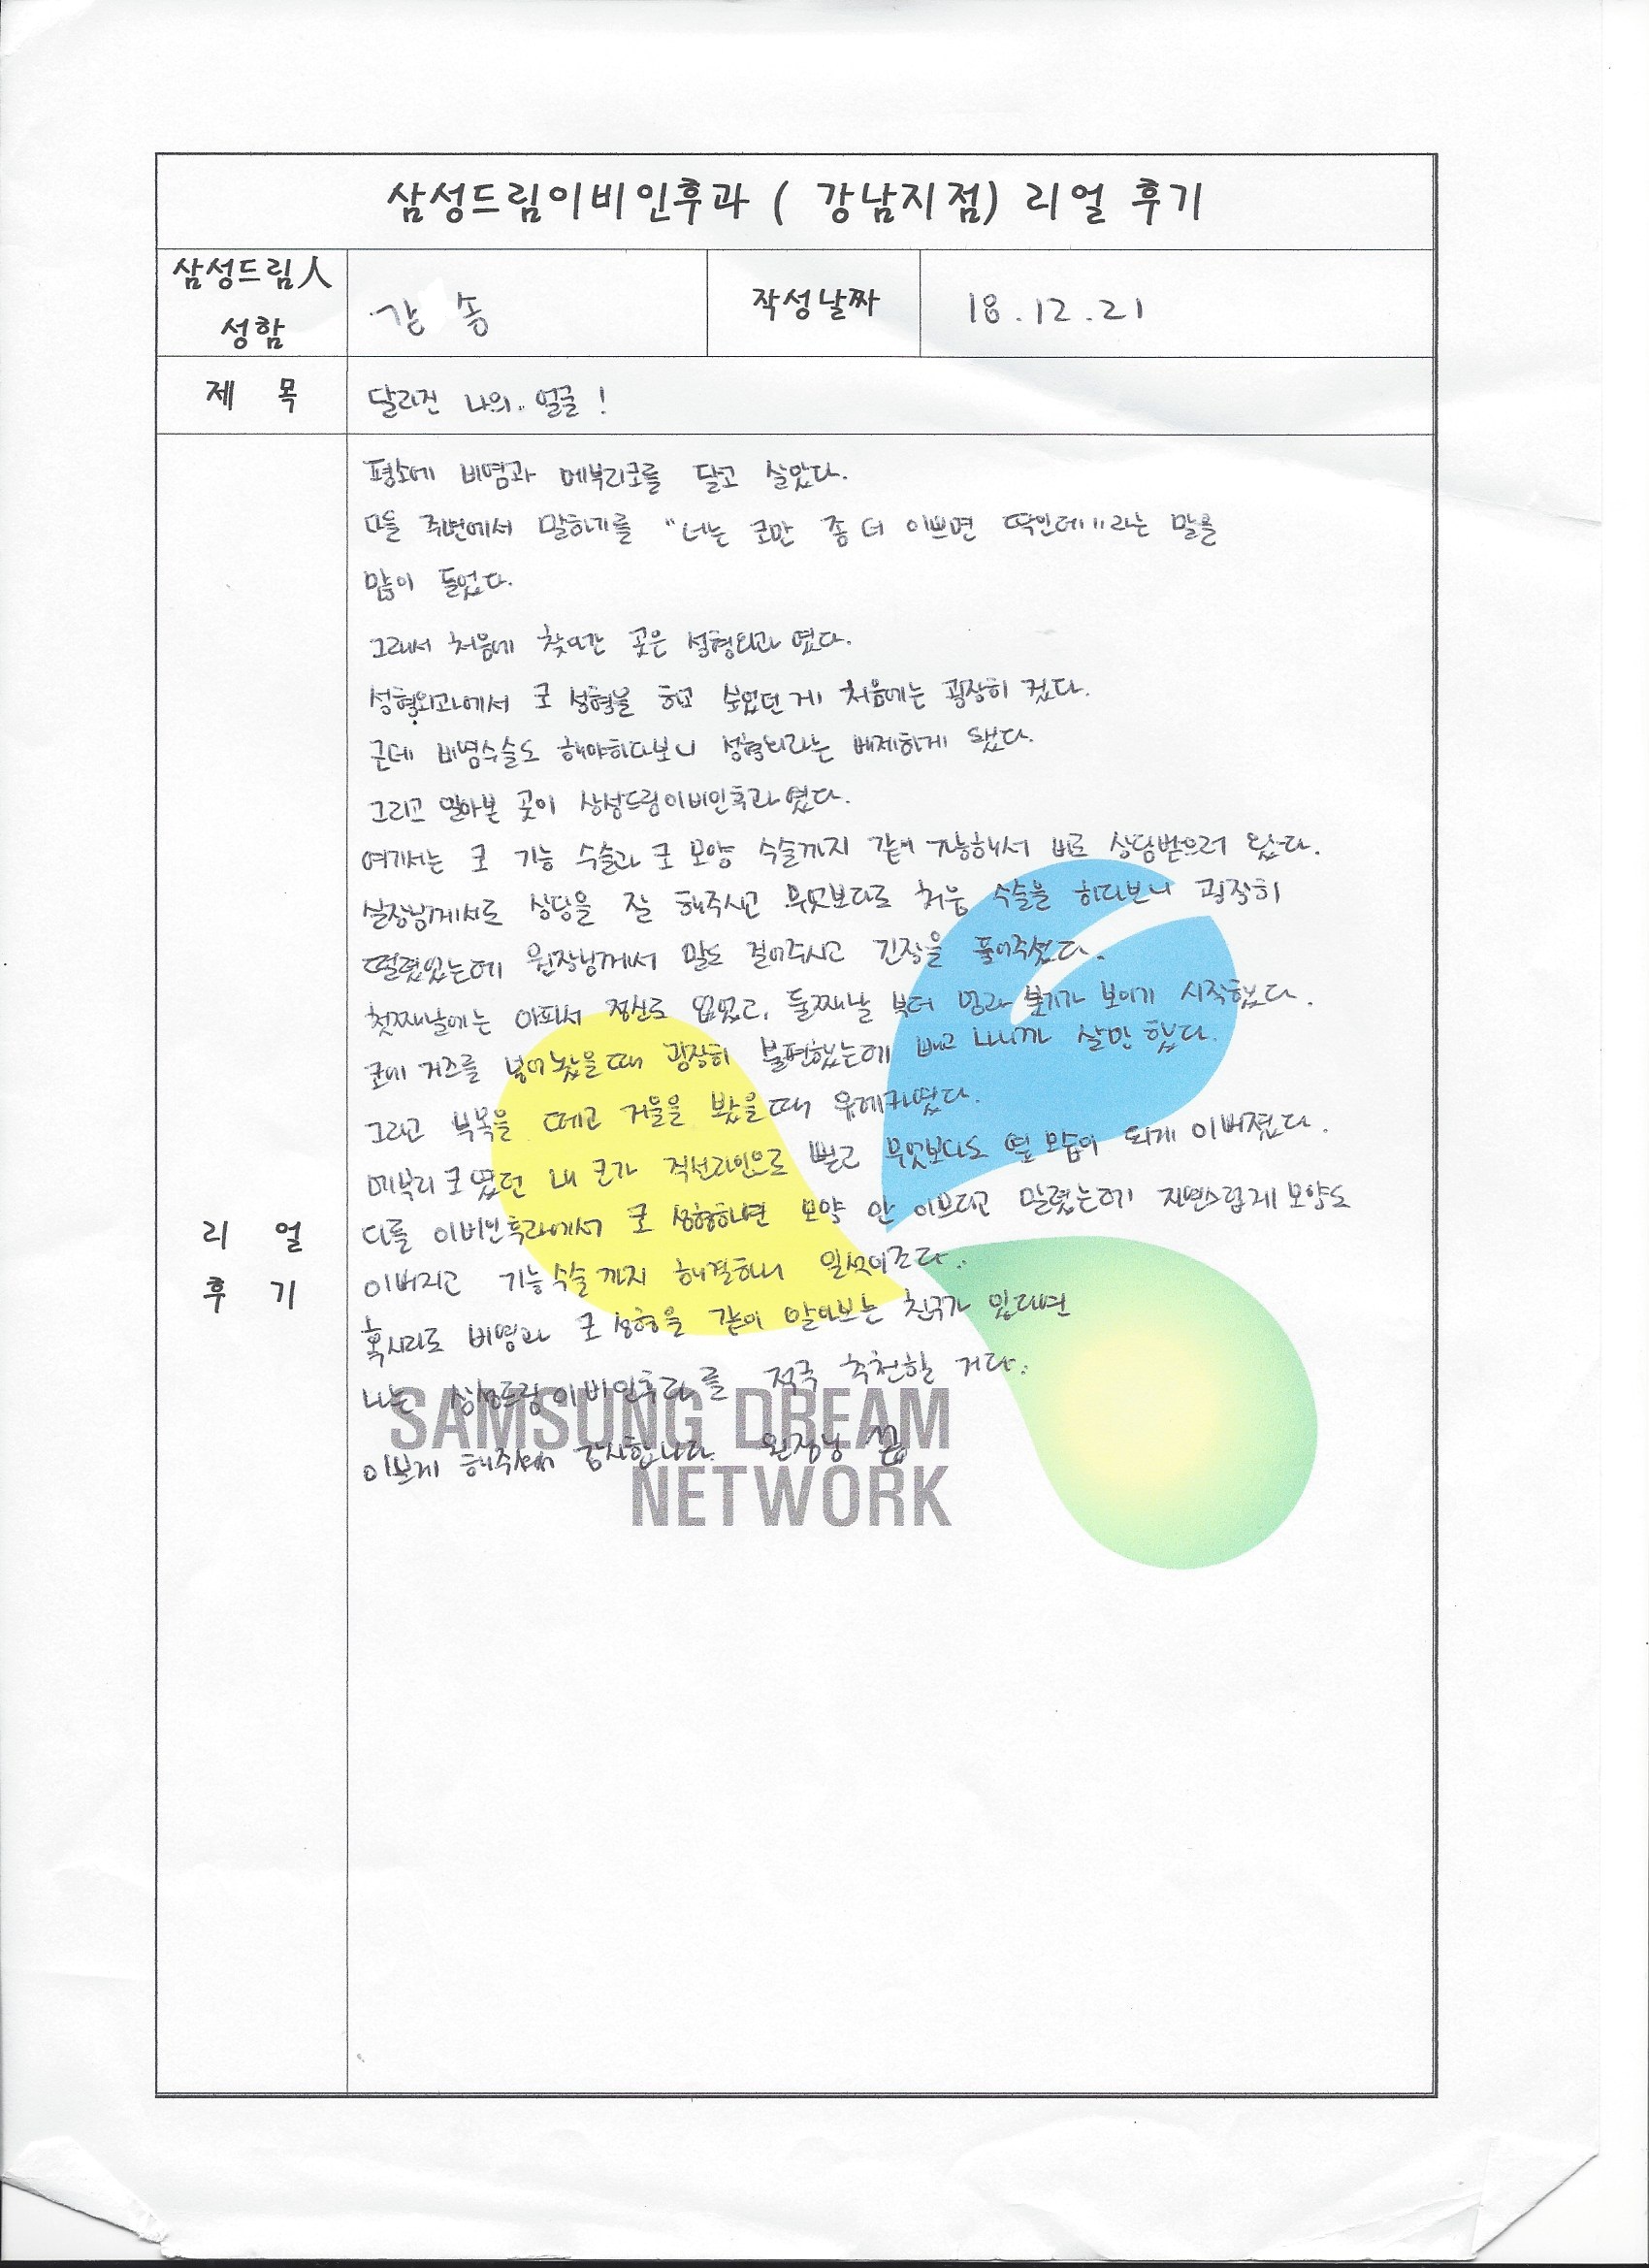 삼성드림이비인후과 ( 강남지점) 리얼 후기
삼성드림人
성함
강 송
작성날짜
18.12.21
제 목
달라진 나의.. 얼굴!
평소에 비염과 메부리코를 달고 살았다.
다들 주변에서 말하기를 "너는 코만 좀 더 이쁘면 딱인데"라는 말을
많이 들었다.
그래서 처음에 찾아간 곳은 성형외과 였다.
성형외과에서 코 성형을 하고 싶었던 게 처음에는 굉장히 컸다.
근데 비염수술도 해야하다보니 성형외과는 배제하게 됐다.
그리고 알아본 곳이 삼성드림이비인후과였다.
여기서는 코 기능 수술과 코 모양 수술까지 같이 가능해서 바로 상담받으러 왔다.
실장님께서도 상담을 잘 해주시고 무엇보다도 처음 수술을 하다보니 굉장히
떨렸었는데 원장님께서 말도 걸어주시고 긴장을 풀어주셨다.
첫째날에는 아파서 정신도 없었고, 둘째날 부터 멍과 붓기가 보이기 시작했다.
코에 거즈를 넣어놨을때 굉장히 불편했는데 빼고 나니까 살만 했다.
그리고 부목을 떼고 거울을 봤을때 유레카였다.
메부리 코였던 내 코가 직선라인으로 뻗고 무엇보다도 옆 모습이 되게 이뻐졌다.
다들 이비인후과에서 코 성형하면 모양 안 이쁘다고 말렸는데 자연스럽게 모양도
이뻐지고 기능수술까지 해결하니 일석이조다.
혹시라도 비염과 코 성형을 같이 알아보는 친구가 있다면
나는 삼성드림이비인후과를 적극 추천할 거다.
이쁘게 해주셔서 감사합니다. 원장님
리 얼
후 기
SAMSUNG DREAM
NETWORK